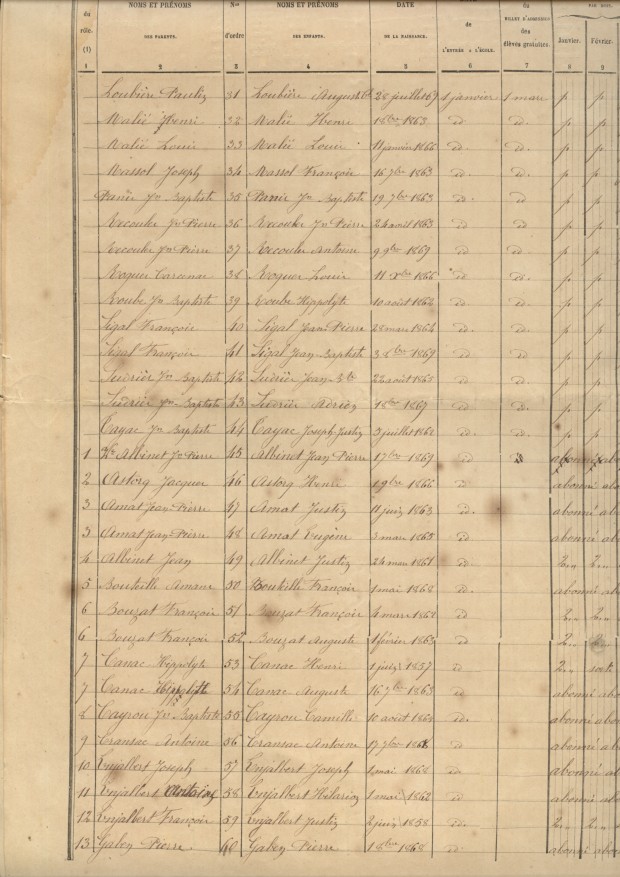 du rôle. (1) NOMS ET PRÉNOMS DES PARENTS. Nos d'ordre NOMS ET PRÉNOMS DES ENFANTS. DATE DE LA NAISSANCE. de L'ENTRÉE A L'ÉCOLE. du BILLET D'ADMISSION des élèves gratuites. Janvier. Février.
1 2 3 4 5 6 7 8 9
Loubière Paulin 31 Loubière 28 juillet 69 1 janvier 1 mars p p
Malié Henri 32 Malié Henri 1863 id id. p p
Malié Louis 33 Malié Louis 11 janvier 1866 id. id. p p
Massol Joseph 34 Massol François 16 7bre 1863 id. id. p p
Jn Baptiste 35 Jn Baptiste 19 7bre 1863 id. id p p
Recoules Jn Pierre 36 Recoules Jn Pierre 24 août 1863 id id p p
Recoules Jn Pierre 37 Recoules Antoine 9 9bre 1869 id id. p p
38 Louis 11 Xbre 1866 id id. p p
Roube Jn Baptiste 39 Roube Hippolyte 10 août 1862 id id. p p
Sigal François 40 Sigal Jean Pierre 28 mars 1864 id. id. p p
Sigal François 41 Sigal Jean-Baptiste 1869 id id. p p
Sudrièr Jn Baptiste 42 Sudrièr Jean-Bte août id. id p p
Sudrièr Jn Baptiste 43 Sudrièr Adrien 1869 id. id. p p
Cayac Jn Baptiste 44 Cayac Joseph-Justin 3 juillet 1862 id. id. p p
1 Albinet Jn Pierre 45 Albinet Jean Pierre 1 7bre 1869 id abonné abo
2 Astorg Jacques 46 Astorg Henri 1 9bre 1866 id abonné abo
3 Amat Jean-Pierre 47 Amat Justin 11 juin 1863 id. abonné abo
3 Amat Jean-Pierre 48 Amat Eugène mars 1865 id abonné abo
4 Albinet Jean 49 Albinet Justin 24 mars 1861 id 2,, 2,,
5 Bouteille Amans 50 Bouteille François 1 mai 1868 id abonné abo
6 Bouzat François 51 Bouzat François 4 mars 1862 id 2,, 2,,
6 Bouzat François 52 Bouzat Auguste 1 février 1865 id 2,, 2,,
7 Canac Hippolyte 53 Canac Henri 1 juin 1857 id 2,,
7 Canac Hippolyte 54 Canac Auguste 16 7bre 1865 id abonné abo
8 Cayrou Jn Baptiste 55 Cayrou Camille 10 août id abonné abo
9 Cransac Antoine 56 Cransac Antoine 17 id abonné abo
10 Enjalbert Joseph 57 Enjalbert Joseph 1 mai 1868 id abonné abo
11 Enjalbert Antoine 58 Enjalbert Hilarion 1 mai 1862 id abonné abo
12 Enjalbert François 59 Enjalbert Justin 2 juin 1858 id. 2,, 2,,
13 Gaben Pierre 60 Gaben Pierre 1 8bre 1868 id abonné abo